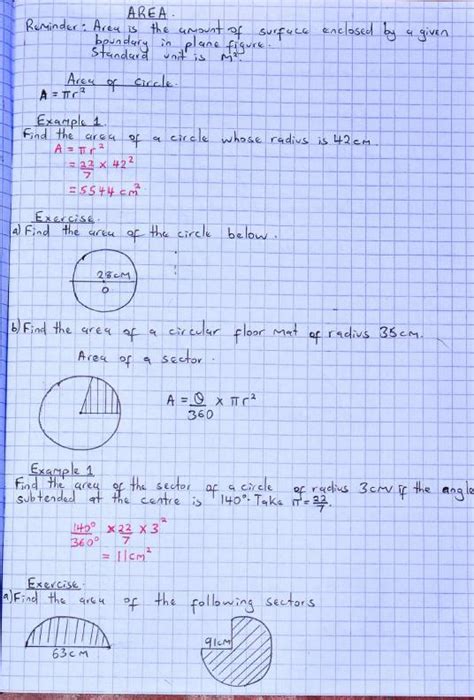 AREA.
Reminder: Area is the amount of surface enclosed by a given
boundary in plane figure.
Standard unit is M².
Area of Circle.
A = πr²
Example 1.
Find the area of a circle whose radius is 42cm.
A = πr²
= 22/7 × 42²
= 5544 cm²
Exercise.
a) Find the area of the circle below.
28cm
O
b) Find the area of a circular floor mat of radius 35cm.
Area of a sector.
A = θ/360 × πr²
Example 1
Find the area of the sector of a circle of radius 3cm if the angle
subtended at the centre is 140°. Take π = 22/7.
140°/360° × 22/7 × 3²
= 11cm²
Exercise.
a) Find the area of the following sectors
63cm
91cm